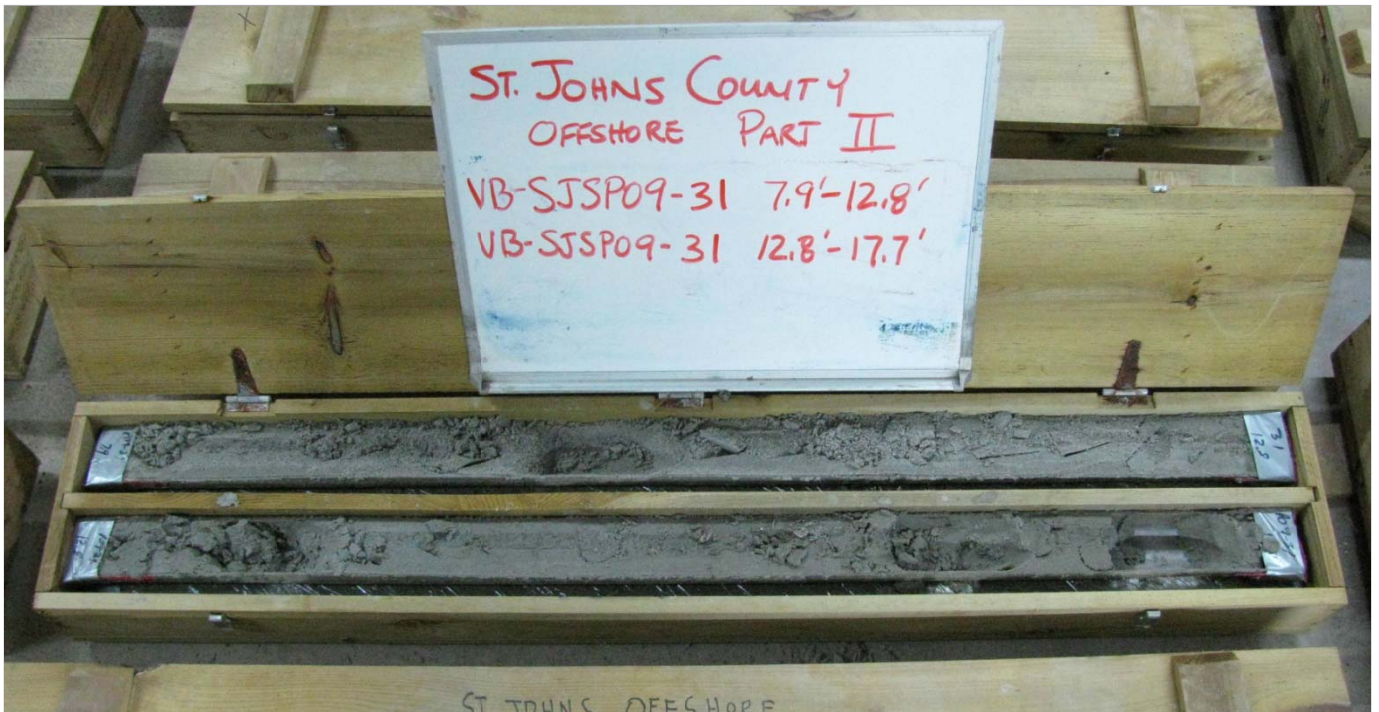 ST. JOHNS COUNTY
OFFSHORE PART II
VB-SJSP09-31 7.9'-12.8'
VB-SJSP09-31 12.8'-17.7'
ST JOHNS OFFSHORE